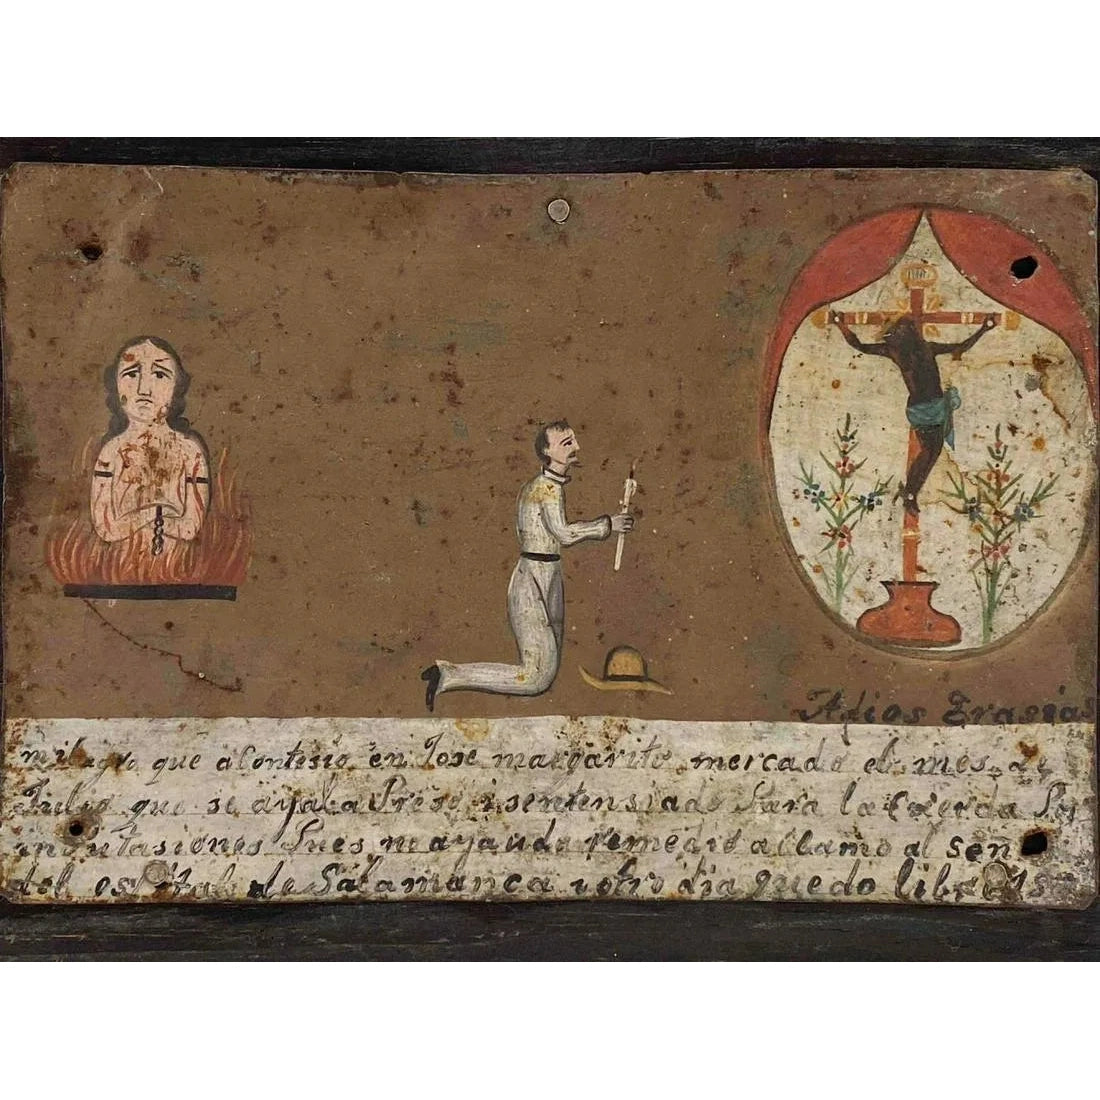 INRI
A dios Grasias
milagro que acontesio en Jose margarito mercado el mes de
Julio que se ayaba Preso i sentensiado Para la Cuerda Por
inputasiones Pues no ayando remedio aclamo al señ
del ospital de Salamanca i otro dia quedo libre